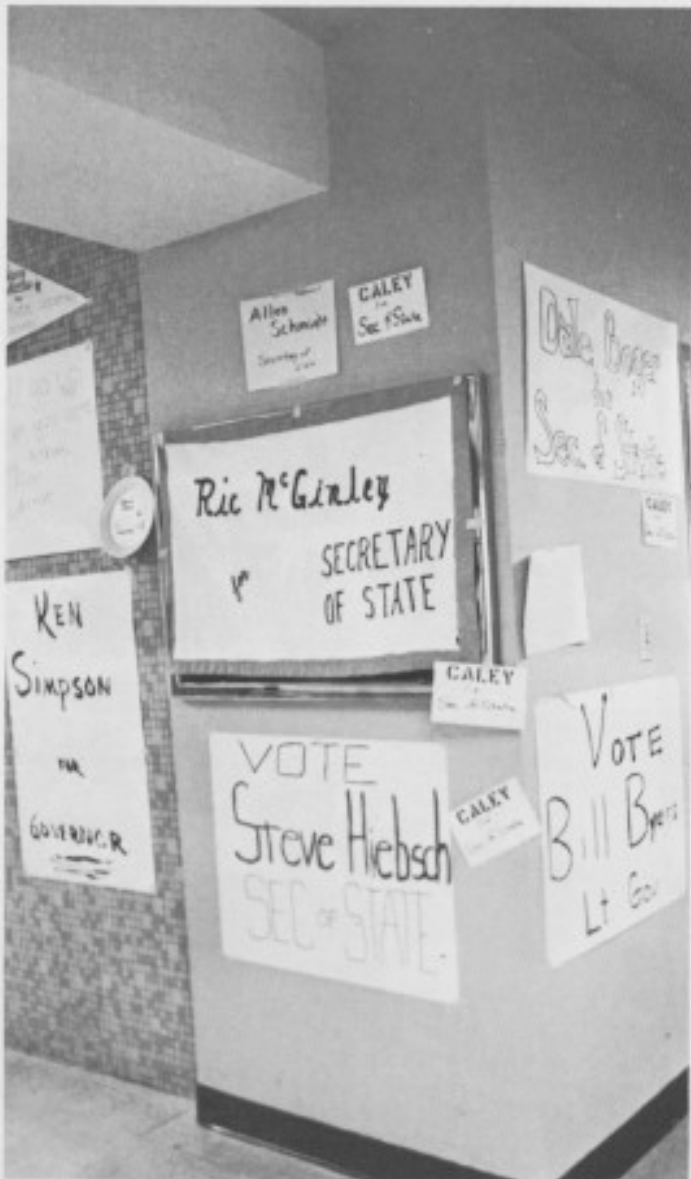 Allen
Schmidt
Secretary of
State
CALEY
for
Sec of State
Ric McGinley
for
SECRETARY
OF STATE
KEN
SIMPSON
FOR
GOVERNOR
CALEY
for
Sec of State
VOTE
Steve Hiebsch
SEC OF STATE
CALEY
Dale
for
Sec. of State
CALEY
VOTE
Bill Byers
Lt Gov